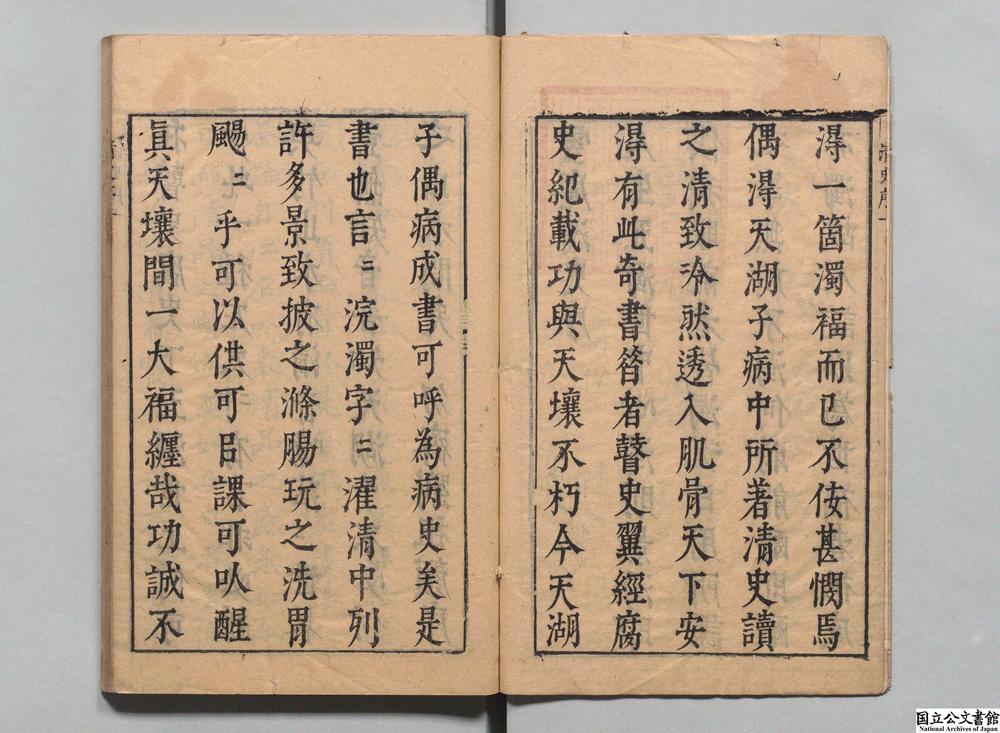 淂一箇濁福而已不佞甚憫焉
偶淂天湖子病中所著清史讀
之清致泠然透入肌骨天下安
淂有此奇書昝者瞽史翼經腐
史紀載功與天壤不朽今天湖
子偶病成書可呼為病史矣是
書也言〻浣濁字〻濯清中列
許多景致披之滌腸玩之洗胃
颺〻乎可以供可㠯課可㕥醒
真天壤間一大福纏哉功誠不
清史序
国立公文書館
National Archives of Japan